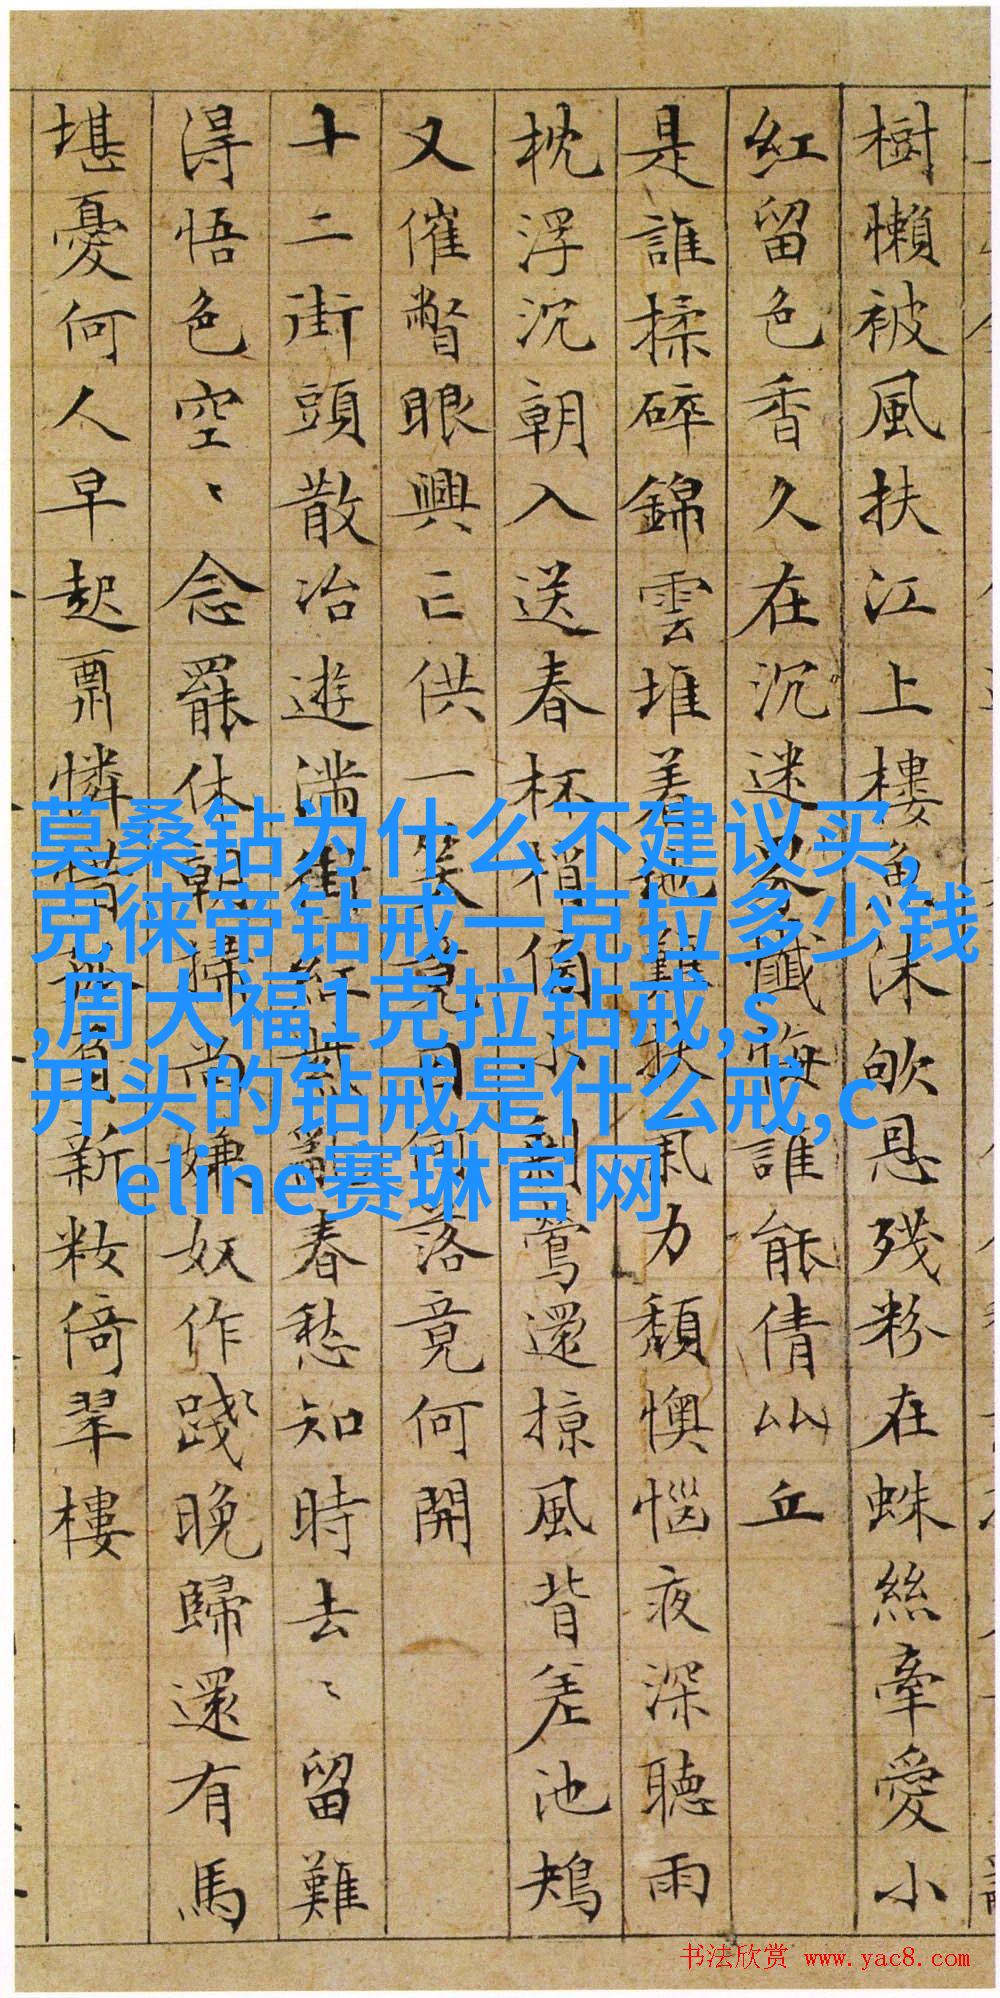 樹懶被風扶江上樓魚沫欨恩殘粉在蛛絲牽愛小
紅留色香久在沉迷懺悔誰能倩比丘
是誰揉碎錦雲堆著地難扶氣力頹懊惱夜深聽雨
枕浮沉朝入送春杯梢倚水剩鶯還掠風背差池鴂
又催瞥眼興亡供一笑竟何開
十二街頭散冶遊滿街紅紫亂春愁知時去〻留難
得悟色空〻念罷休朝掃尚嫌奴作踐晚歸還有馬
堪憂何人早起憐惜新妝倚翠樓
莫桑钻为什么不建议买,
克徕帝钻戒一克拉多少钱
,周大福1克拉钻戒,s
开头的钻戒是什么戒,c
eline赛琳官网
书法欣赏 www.yac8.com